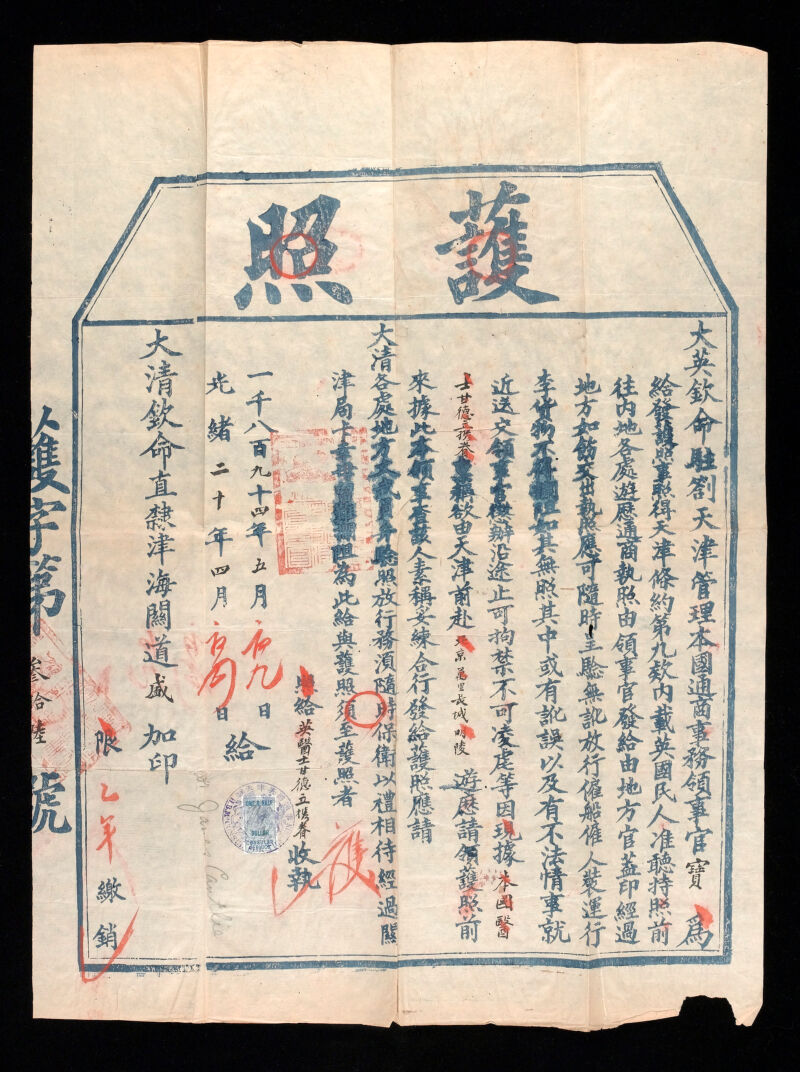 護照
大英欽命駐劄天津管理本國通商事務領事官寶 為
給發護照事照得天津條約第九款內載英國民人准聽持照前
往內地各處遊歷通商執照由領事官發給由地方官蓋印經過
地方如飭交出執照應可隨時呈驗無訛放行僱船僱人裝運行
李貨物不得攔阻如其無照其中或有訛誤以及有不法情事就
近送交領事官懲辦沿途止可拘禁不可凌虐等因現據 本國醫
士甘德立携眷稟稱欲由天津前赴 北京萬里長城明陵 遊歷請領護照前
來據此本領事查該人素稱妥練合行發給護照應請
大清各處地方文武員弁驗照放行務須隨時保衛以禮相待經過關
津局卡幸毋留難攔阻為此給與護照須至護照者
照給英醫士甘德立携眷收執
一千八百九十四年五月 日
光緒二十年四月 日 給
大清欽命直隸津海關道盛 加印
限 年繳銷
護字第叁拾陸號
ONE & HALF
DOLLAR
CONSULAR
SERVICE
James Cantlie